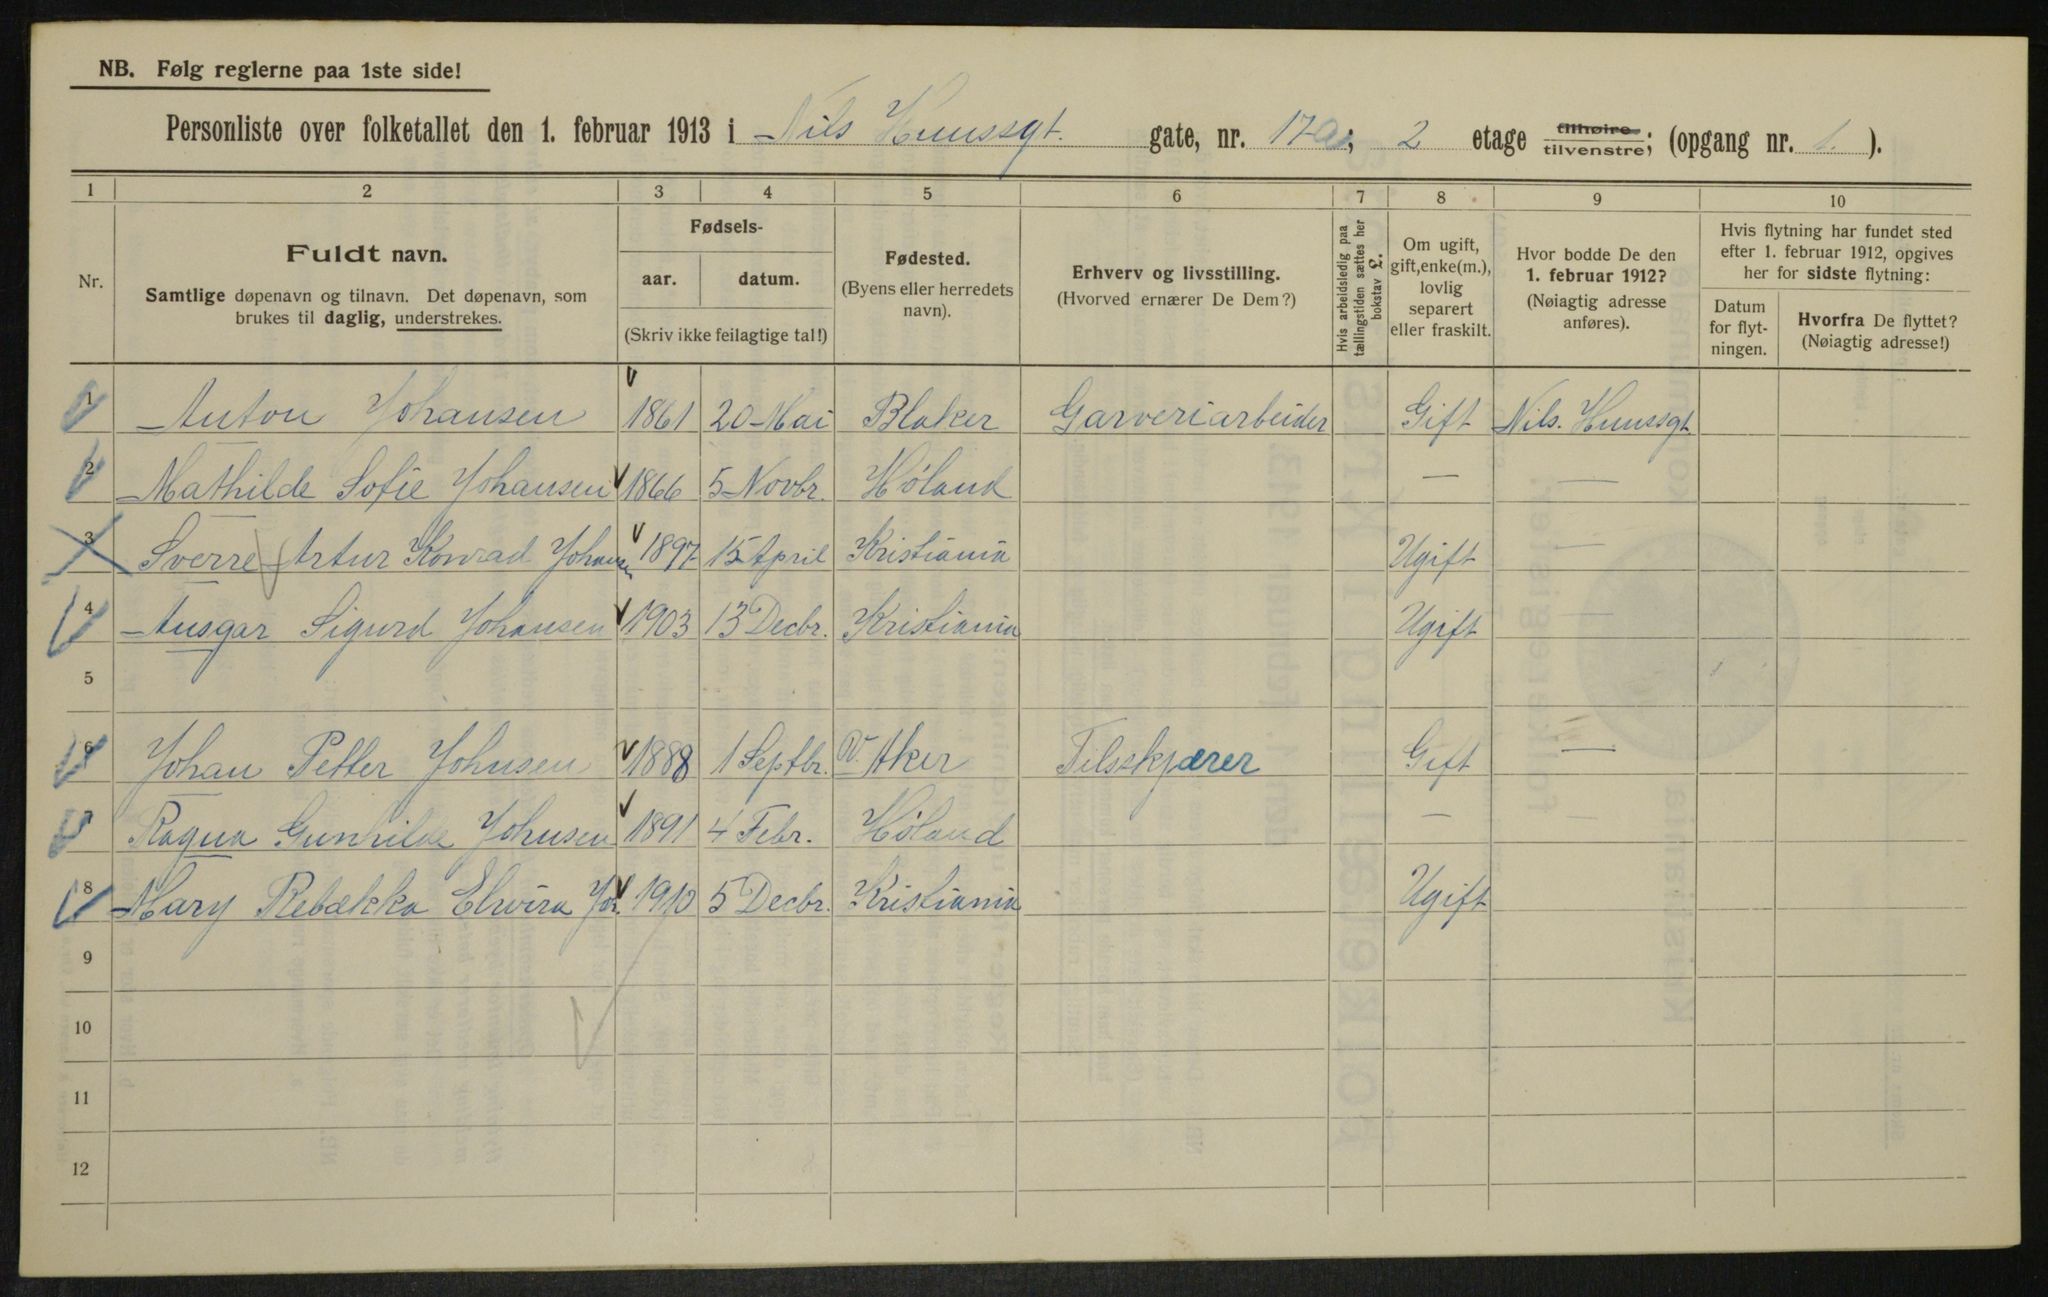 NB. Følg reglerne paa 1ste side!
Personliste over folketallet den 1. februar 1913 i Nils Huussgt. gate, nr. 17a; 2 etage tilhøire tilvenstre; (opgang nr. 1. ).
1 2 3 4 5 6 7 8 9 10
Nr.
Fuldt navn.
Samtlige døpenavn og tilnavn. Det døpenavn, som brukes til daglig, understrekes.
Fødsels-
aar. datum.
(Skriv ikke feilagtige tal!)
Fødested.
(Byens eller herredets navn).
Erhverv og livsstilling.
(Hvorved ernærer De Dem?)
Hvis arbeidsledig paa tællingstiden sættes her bokstav L.
Om ugift, gift, enke(m.), lovlig separert eller fraskilt.
Hvor bodde De den 1. februar 1912?
(Nøiagtig adresse anføres).
Hvis flytning har fundet sted efter 1. februar 1912, opgives her for sidste flytning:
Datum for flyt- ningen.
Hvorfra De flyttet?
(Nøiagtig adresse!)
1 Anton Johansen 1861 20 Mai Blaker Garveriarbeider Gift Nils. Huussgt
2 Mathilde Sofie Johansen 1866 5 Novbr. Høland — —
3 Sverre Artur Konrad Johansen 1897 15 April Kristiania Ugift —
4 Ansgar Sigurd Johansen 1903 13 Decbr. Kristiania Ugift —
5
6 Johan Petter Johnsen 1888 1 Septbr. V. Aker Filsskjærer Gift —
7 Ragna Gunhilde Johnsen 1891 4 Febr. Høland — —
8 Mary Rebækka Elvira Joh. 1910 5 Decbr. Kristiania Ugift
9
10
11
12